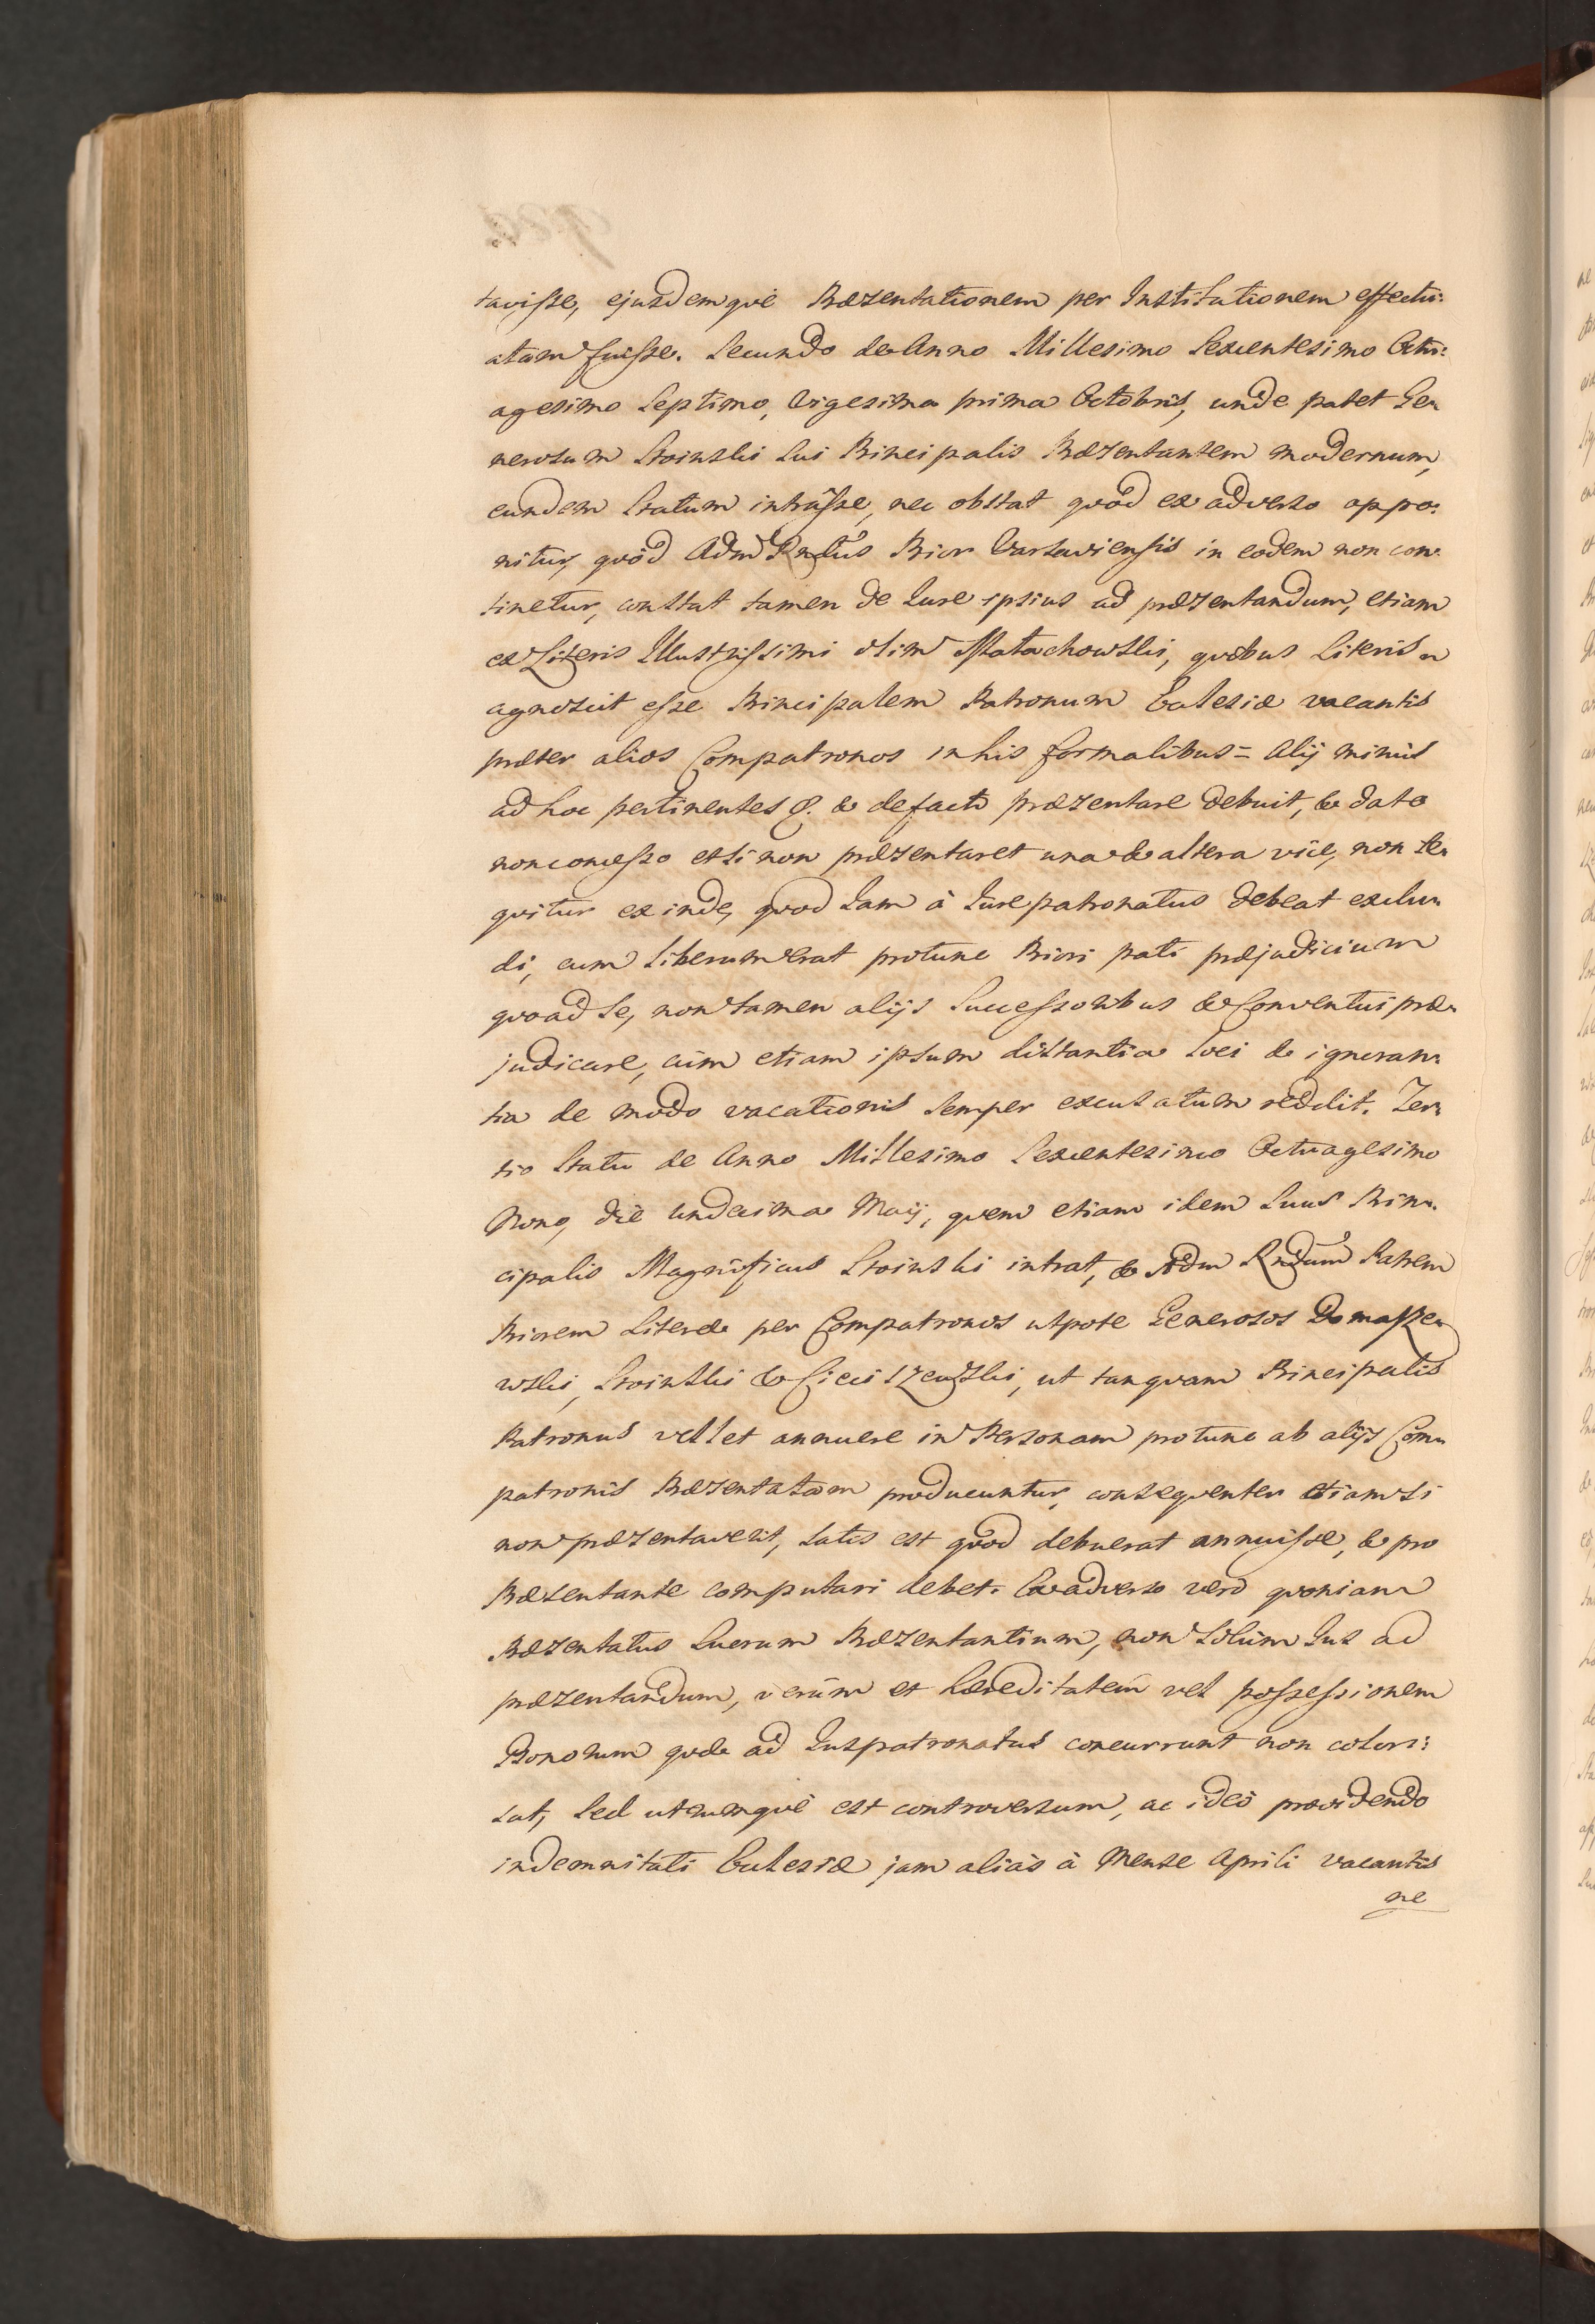 tavisse, ejusdemqvè Præzentationem per Institutionem effectu:
atam fuisse. Secundo de Anno Millesimo Sexcentesimo Octu:
agesimo Septimo, Vigesima prima Octobris, unde patet Ge-
nerosum Stoinski sui Principalis Præzentantem modernum,
eundem Statum intrâsse, nec obstat qvòd ex adverso appo:
nitur, qvòd Adm Rndus Prior Varsaviensis in eodem non con-
tinetur, constat tamen de Jure ipsius ad præzentandum, etiam
ex Literis Illustrissimi olim Małachowski, qvibus Literis
agnoscit esse Principalem Patronum Eclesiæ vacantis
præter alios Compatronos in his formalibus = Alij minùs
ad hoc pertinentes &. & de facto præzentare debuit, & dato
non concesso etsi non præzentaret una & altera vice, non se-
qvitur exinde, qvod Jam à Jure patronatus debeat exclu-
di, cum liberum erat protunc Priori pati præjudicium
qvoad se, non tamen alijs Successoribus & Conventui præ-
judicare, cùm etiam ipsum distantia loci & ignoran-
tia de modo vacationis semper excusatum reddit. Ter-
tio Statu de Anno Millesimo Sexcentesimo Octuagesimo
Nono, die undecima Maij, qvem etiam idem Suus Prin-
cipalis Magnificus Stoinski intrat, & Adm Rndum Patrem
Priorem Literæ per Compatronos utpote Generosos Domasze-
wski, Stoinski & Ciciszewski, ut tanqvam Principalis
Patronus vellet annuere in Personam protunc ab alijs Com-
patronis Præzentatam producuntur, conseqventer etiamsi
non præzentaverit, satis est qvòd debuerat annuisse, & pro
Præzentante computari debet. Ex adverso verò qvoniam
Præzentatus Suorum Præzentantium, non solùm Jus ad
præzentandum, verùm et hæreditatem vel possessionem
Bonorum qvæ ad Juspatronatus concurrunt non colori:
zat, sed utrumqvè est controversum, ac ideò providendo
indemnitati Eclesiæ jam aliàs à Mense Aprili vacantis
ne